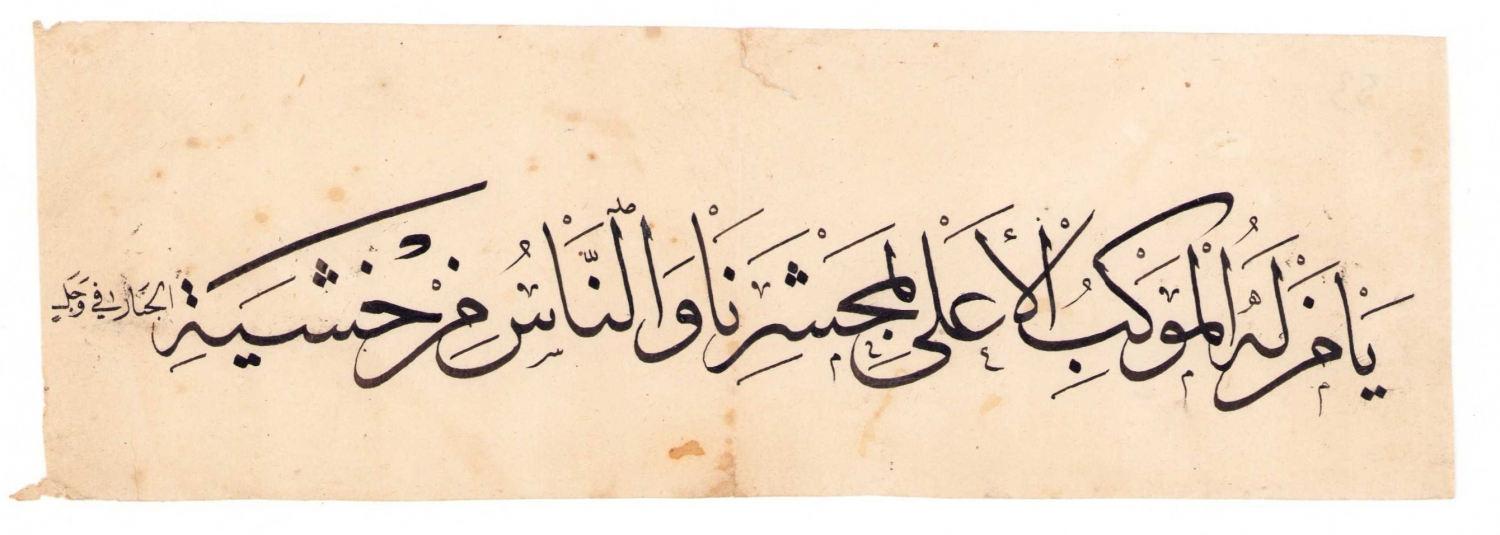 يَا مَنْ لَهُ الْمَوْكِبُ الْأَعْلَى بِمَحْشَرِنَا وَالنَّاسُ مِنْ خَشْيَةِ الجبار في وَجَلِ